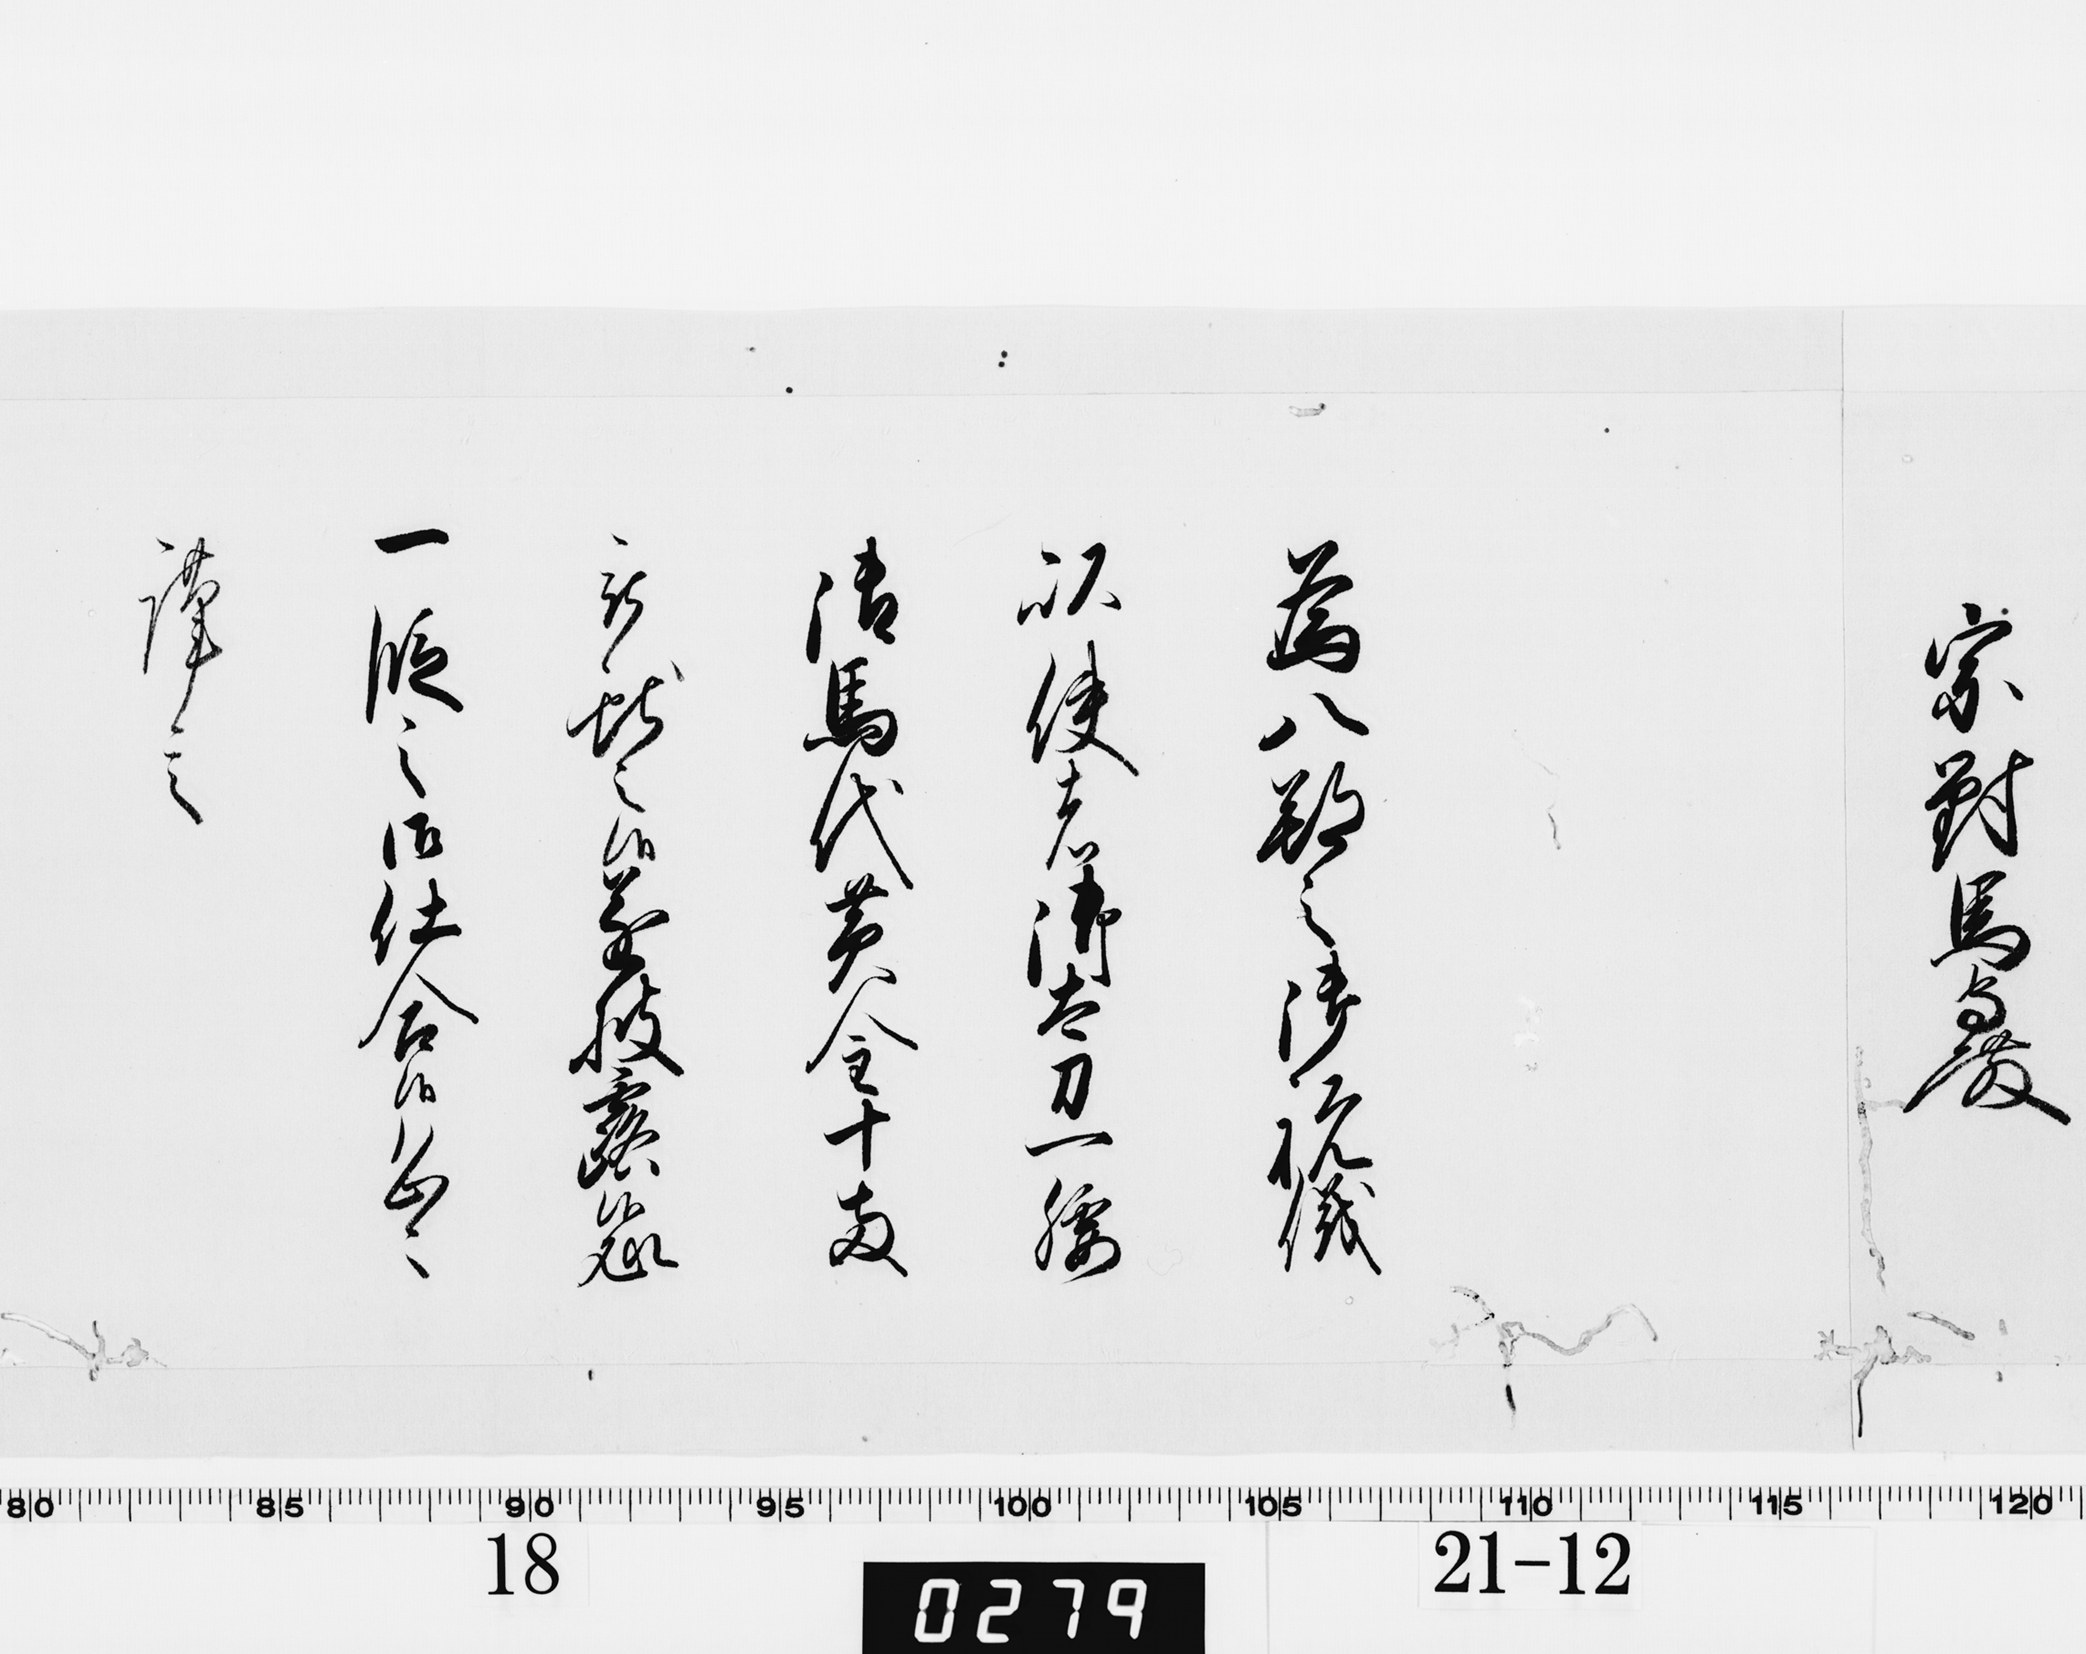 宗對馬守殿
為八朔之御祝儀
以使者御太刀一腰
御馬代黄金十両
被献之候遂披露候處
一段之御仕合候恐々
謹言
80 85 90 95 100 105 110 115 120
18
0279
21-12